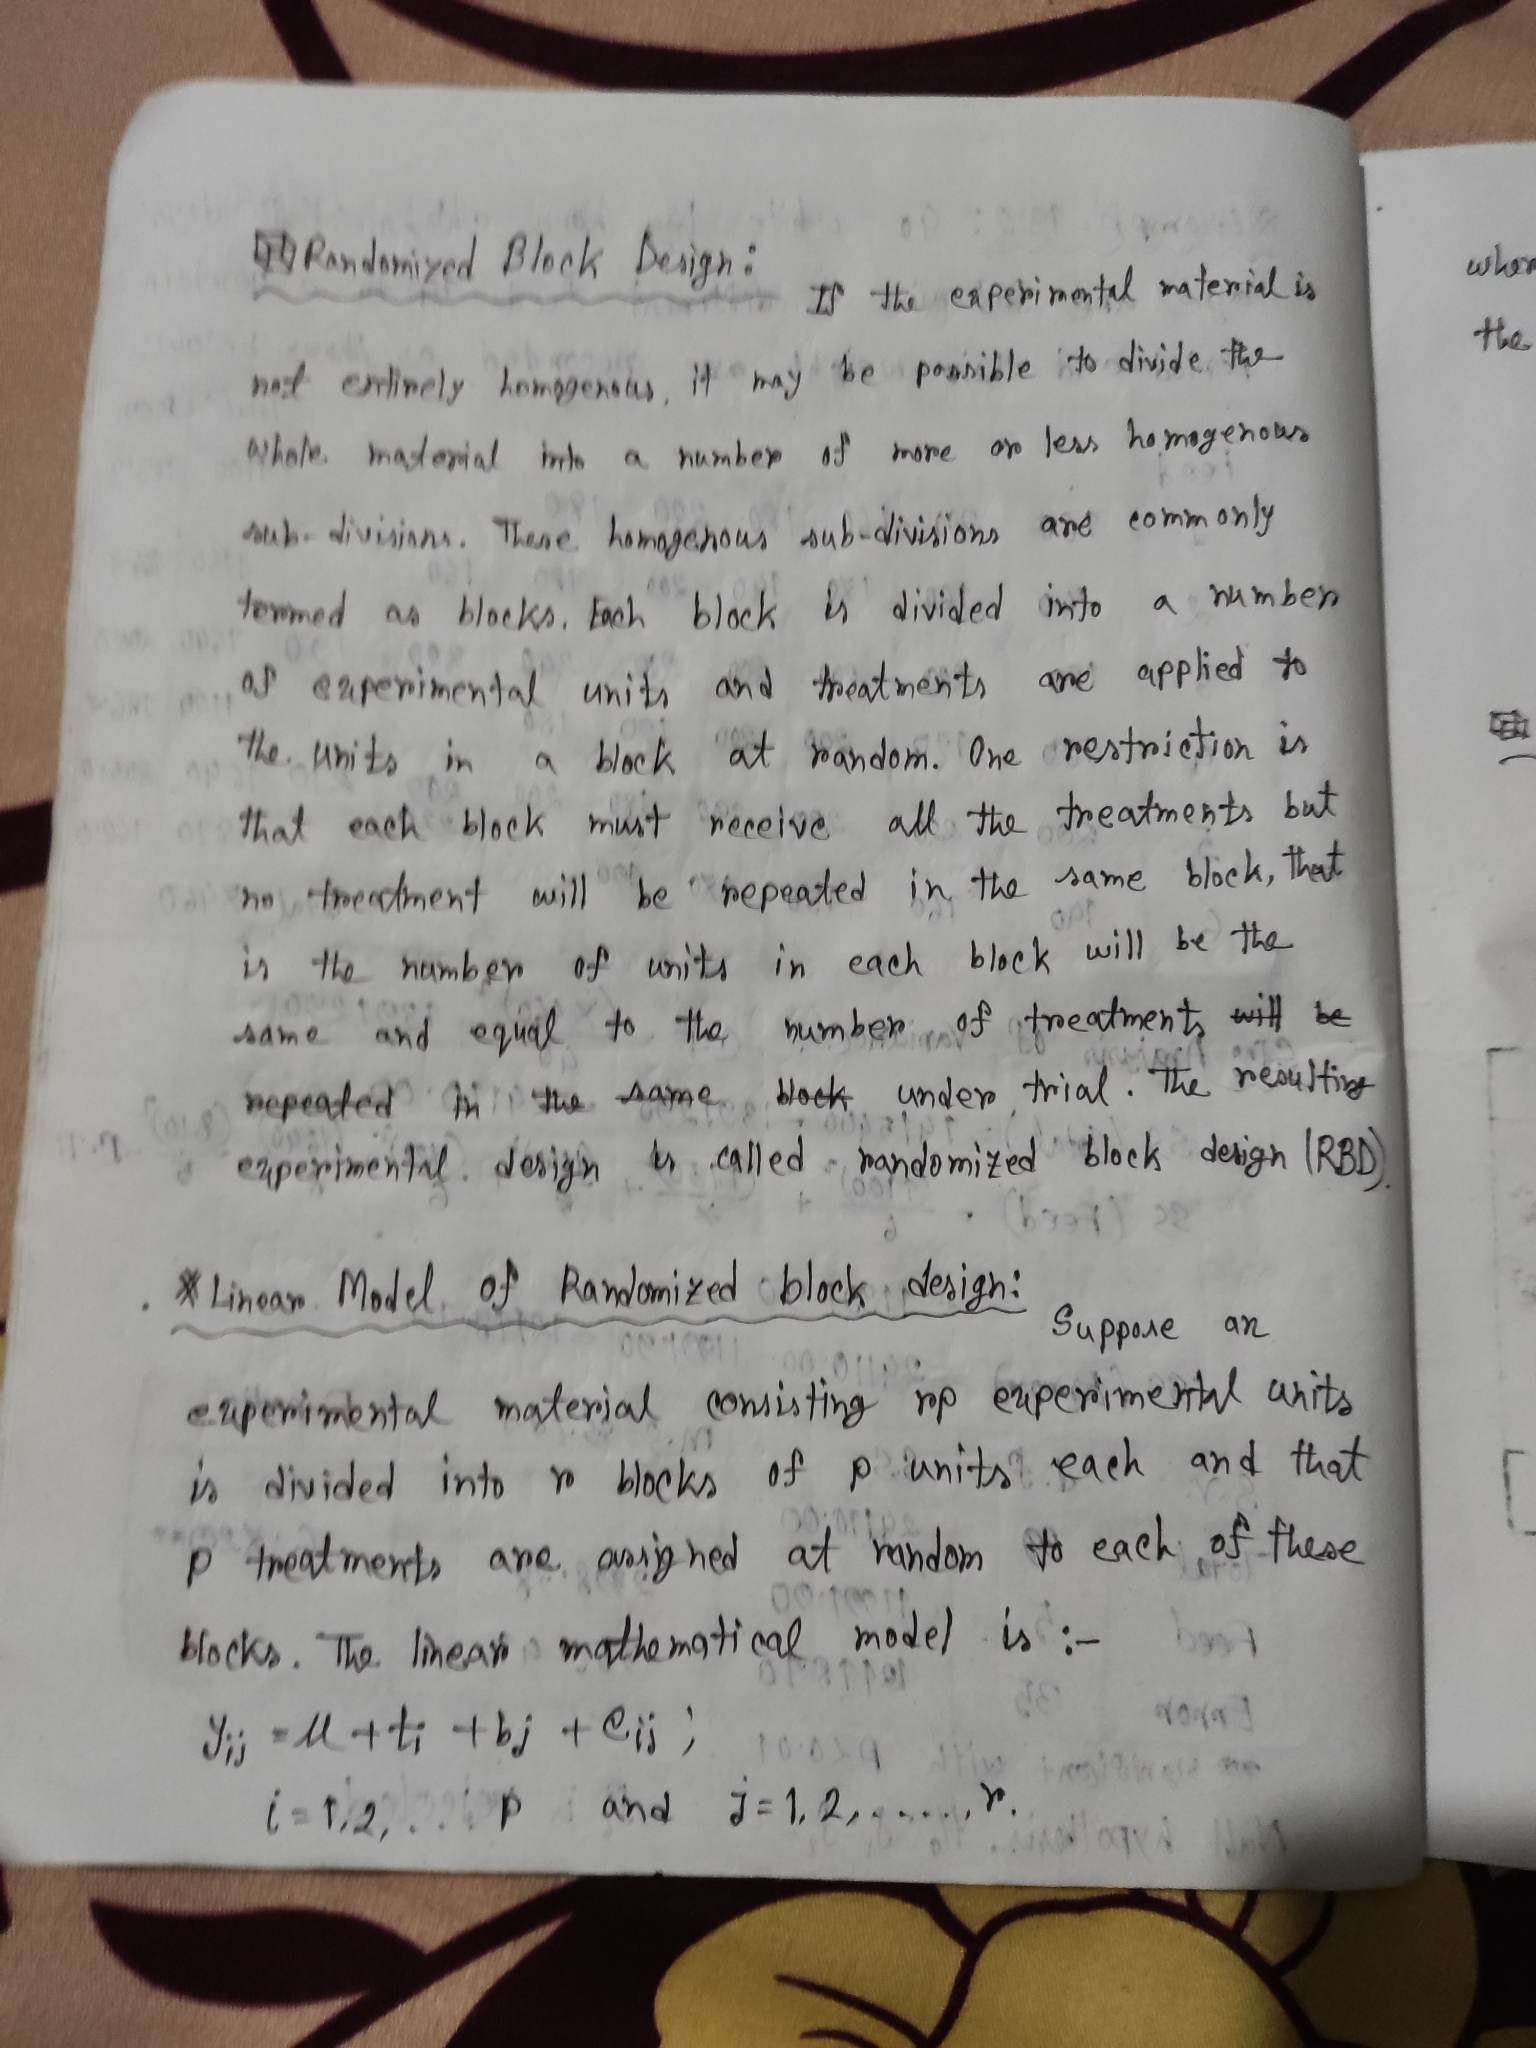 Randomized Block Design:
If the experimental material is
not entirely homogenous, it may be possible to divide the
whole material into a number of more or less homogenous
sub-divisions. These homogenous sub-divisions are commonly
termed as blocks. Each block is divided into a number
of experimental units and treatments are applied to
the units in a block at random. One restriction is
that each block must receive all the treatments but
no treatment will be repeated in the same block, that
is the number of units in each block will be the
same and equal to the number of treatments will be
repeated in the same block under trial. The resulting
experimental design is called randomized block design (RBD).
* Linear Model of Randomized block design:
Suppose an
experimental material consisting rp experimental units
is divided into r blocks of p units each and that
p treatments are assigned at random to each of these
blocks. The linear mathematical model is :-
yij = μ + ti + bj + eij ;
i = 1, 2, ... p and j = 1, 2, ....., r.
the